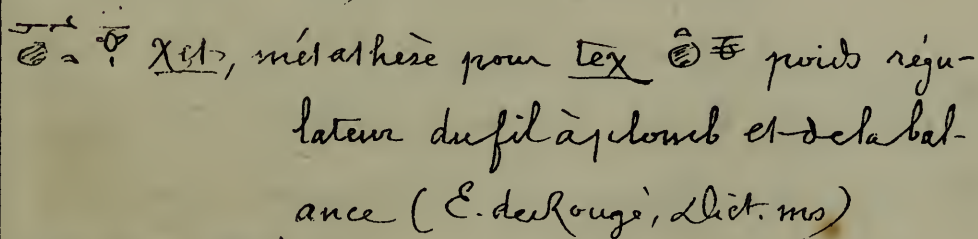 χet, métathèse pour teχ poids régu-
lateur du fil à plomb et de la bal-
ance (E. de Rougé, Dict. ms)